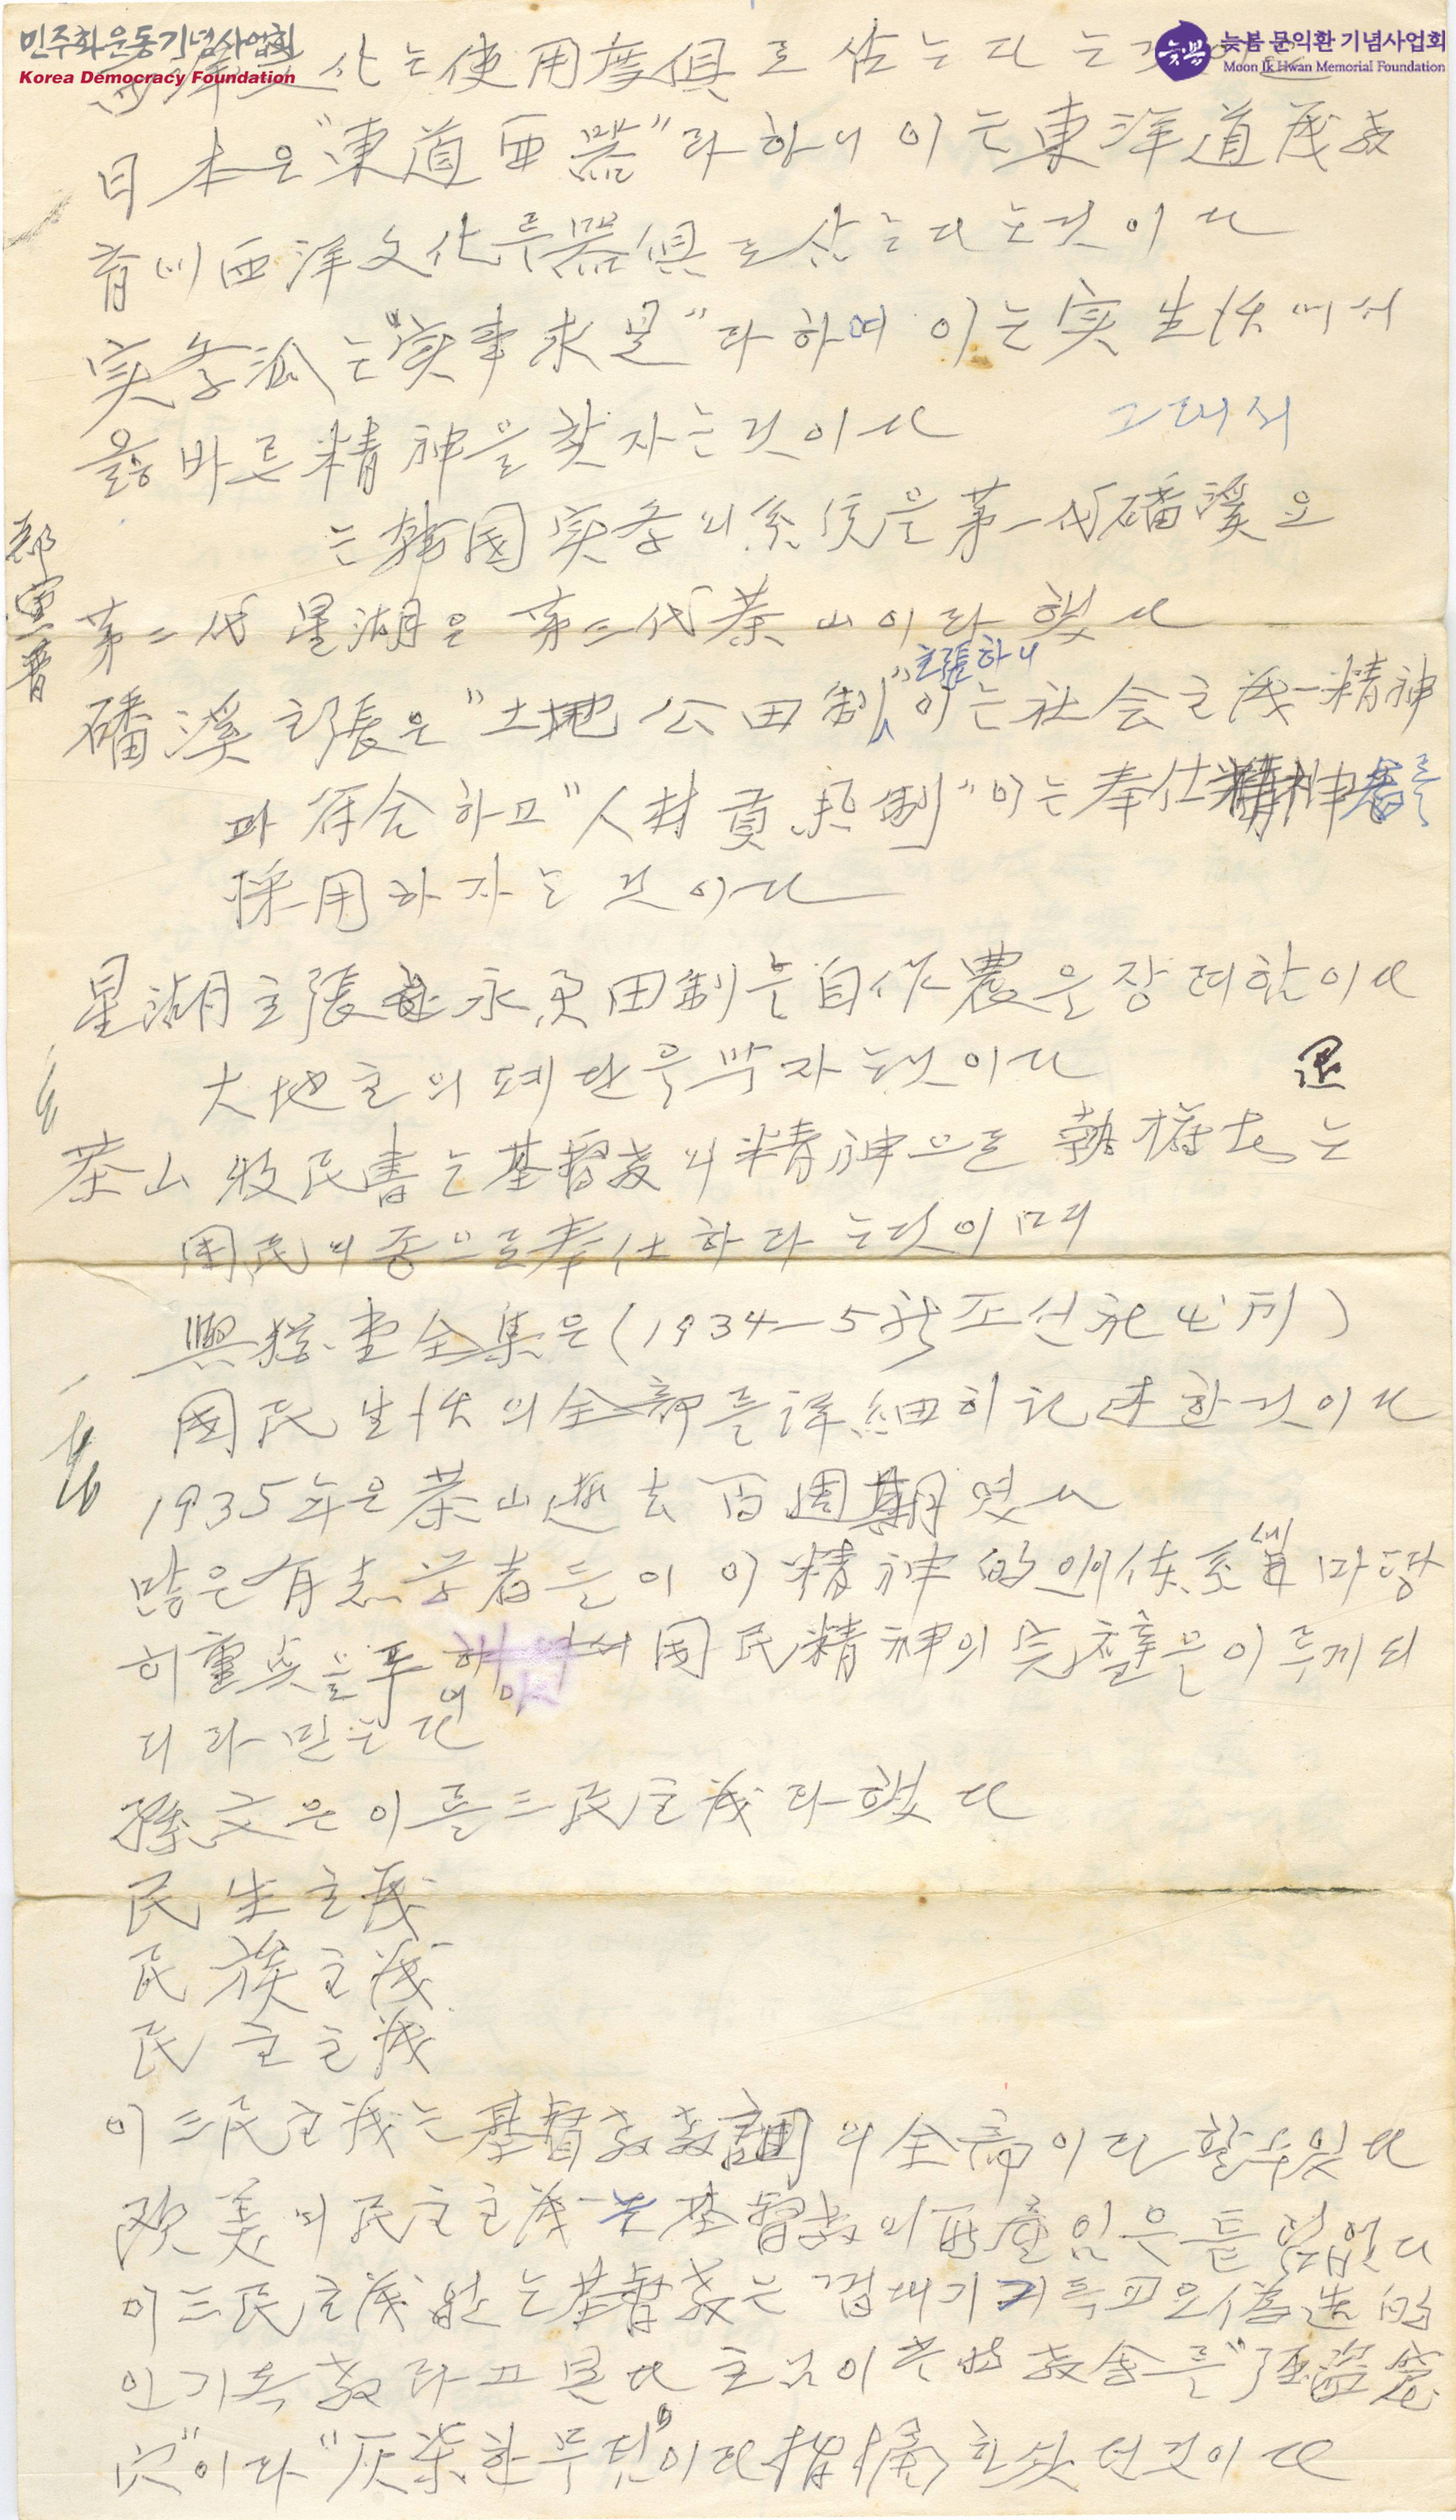 민주화운동기념사업회
Korea Democracy Foundation
늦봄 문익환 기념사업회
Moon Ik Hwan Memorial Foundation
는使用道俱로 삼는다는
日本은 "東道西器"라 하니 이는 東洋道茂教
育에 西洋文化를 器俱로 삼는다는것이다
実学派는 "実事求是"라 하여 이는 実生活에서
올바른 精神을 찾자는것이다 그래서
는 韓国実学의 系統은 第一代 磻溪요
第二代 星湖은 第三代 茶山이라 했다
主張하니
磻溪主張은 "土地公田制" 이는 社会主茂精神
과 符合하고 "人材貢擧制" 이는 奉仕精神者를
採用하자는 것이다
星湖主張 永業田制는 自作農을 장려함이다
大地主의 폐단을 막자는것이다
茶山 牧民書는 基督教의 精神으로 執権者는
国民의 종으로 奉仕하라는것이며
與猶堂全集은 (1934-5 新조선社 出刊)
国民生活의 全部를 詳細히 記述한것이다
1935年은 茶山逝去百週期였다
많은 有志学者들이 이 精神的 体系 마땅
히 重点을 두 国民精神의 完璧은 이루게 되
리라 믿는다
孫文은 이를 三民主義라 했다
民生主義
民族主義
民主主義
이 三民主義는 基督教教訓의 全部이라 할수있다
欧美의 民主主義는 基督教의 所産임은 틀림없다
이 三民主義 없는 基督教는 껍대기 기독교요 偽造的
인 기독教라고 본다 主님이 教会를 "强盜窟
穴"이라 "灰柒한 무덤"이라 指摘하셨던것이다